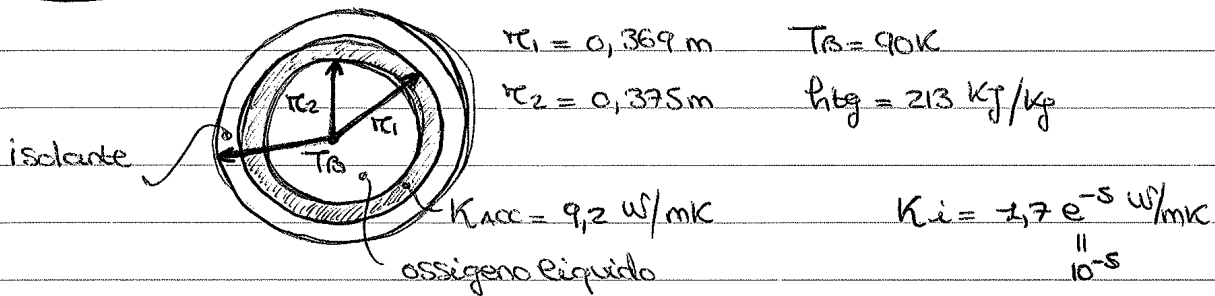 r1 = 0,369 m TB = 90K
r2 = 0,375m hfg = 213 KJ/Kg
isolante
r2
r1
TB
KACC = 9,2 W/mK Ki = 1,7 e^-5 W/mK
=
10^-5
ossigeno liquido